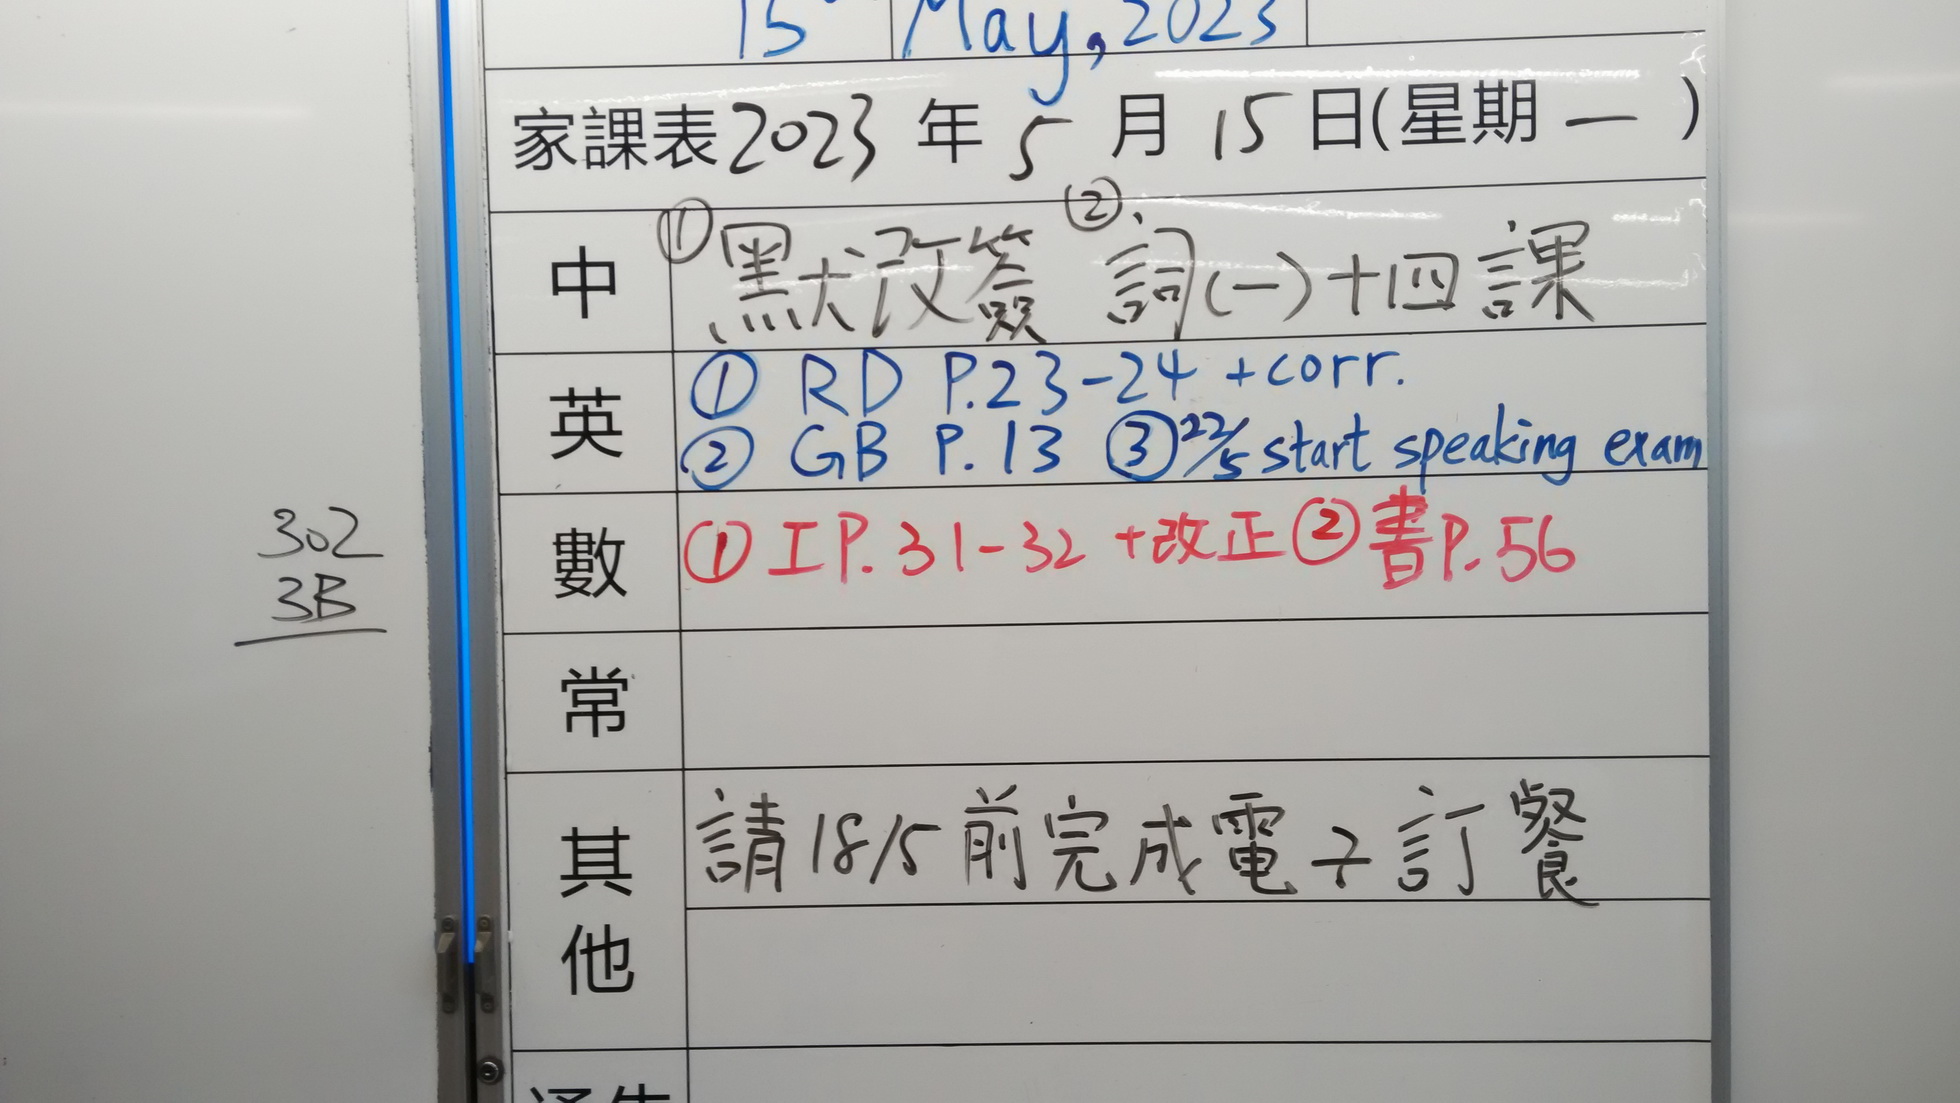 15 May, 2023
家課表 2023 年 5 月 15 日(星期 一 )
中 ① 默改簽 ② 詞(一)十四課
英 ① RD P.23-24 +corr.
② GB P.13 ③ 22/5 start speaking exam
數 ① 工 P.31-32 +改正 ② 書 P.56
302
3B
常
其他 請18/5前完成電子訂餐